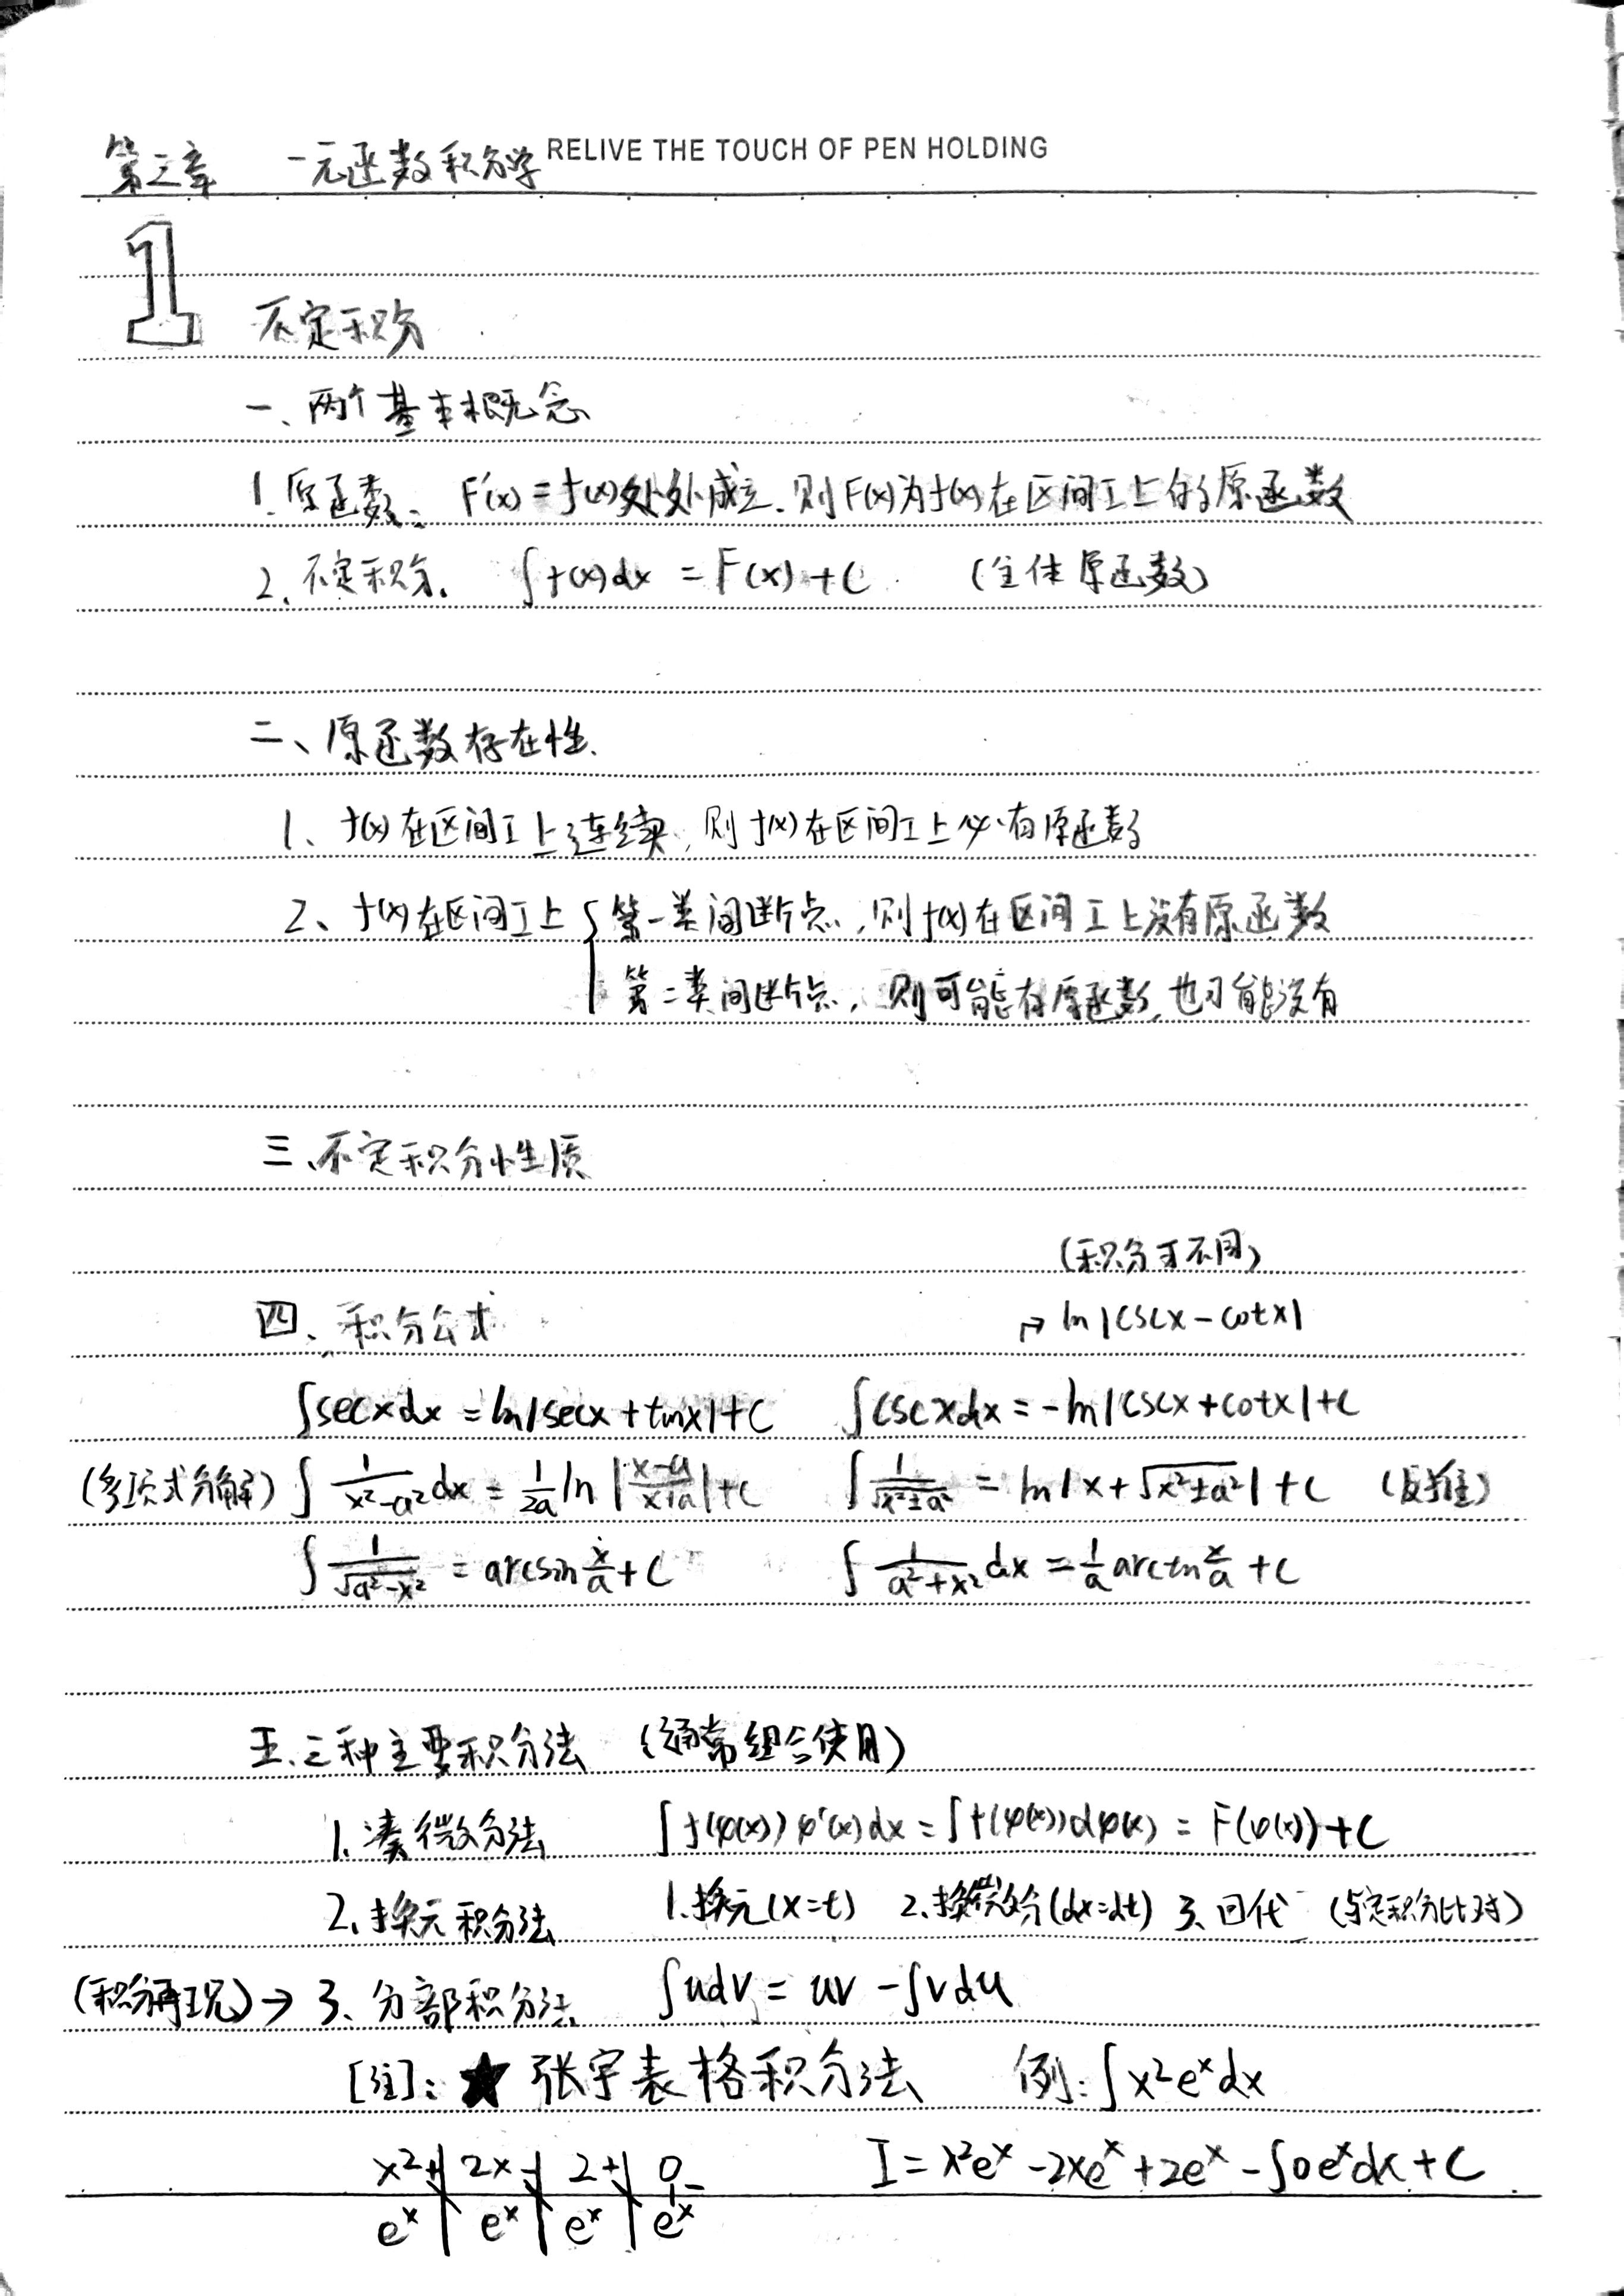 第三章 一元函数积分学 RELIVE THE TOUCH OF PEN HOLDING
1 不定积分
一、两个基本概念
1. 原函数: F'(x) = f(x)处处成立. 则F(x)为f(x)在区间I上的原函数
2. 不定积分. ∫f(x)dx = F(x)+C (全体原函数)
二、原函数存在性.
1、f(x)在区间I上连续, 则f(x)在区间I上必有原函数
2、f(x)在区间I上 { 第一类间断点, 则f(x)在区间I上没有原函数
第二类间断点, 则可能有原函数, 也可能没有
三、不定积分性质
(积分可不同)
四、积分公式 → ln|cscx-cotx|
∫secxdx = ln|secx+tanx|+C ∫cscxdx = -ln|cscx+cotx|+C
(多项式分解) ∫ 1/(x²-a²) dx = 1/2a ln |(x-a)/(x+a)|+C ∫ 1/√(x²±a²) = ln|x+√(x²±a²)|+C (反推)
∫ 1/√(a²-x²) = arcsin x/a +C ∫ 1/(a²+x²) dx = 1/a arctan x/a +C
五、三种主要积分法 (通常组合使用)
1. 凑微分法 ∫f(φ(x))φ'(x)dx = ∫f(φ(x))dφ(x) = F(φ(x))+C
2、换元积分法 1.换元(x=t) 2、换微分(dx=dt) 3、回代 (与定积分比对)
(积分再现) → 3、分部积分法 ∫udv = uv -∫vdu
[注]: ★ 张宇表格积分法 例: ∫x²eˣdx
x² + 2x - 2 + 0 - I = x²eˣ - 2xeˣ + 2eˣ - ∫0eˣdx + C
eˣ eˣ eˣ eˣ